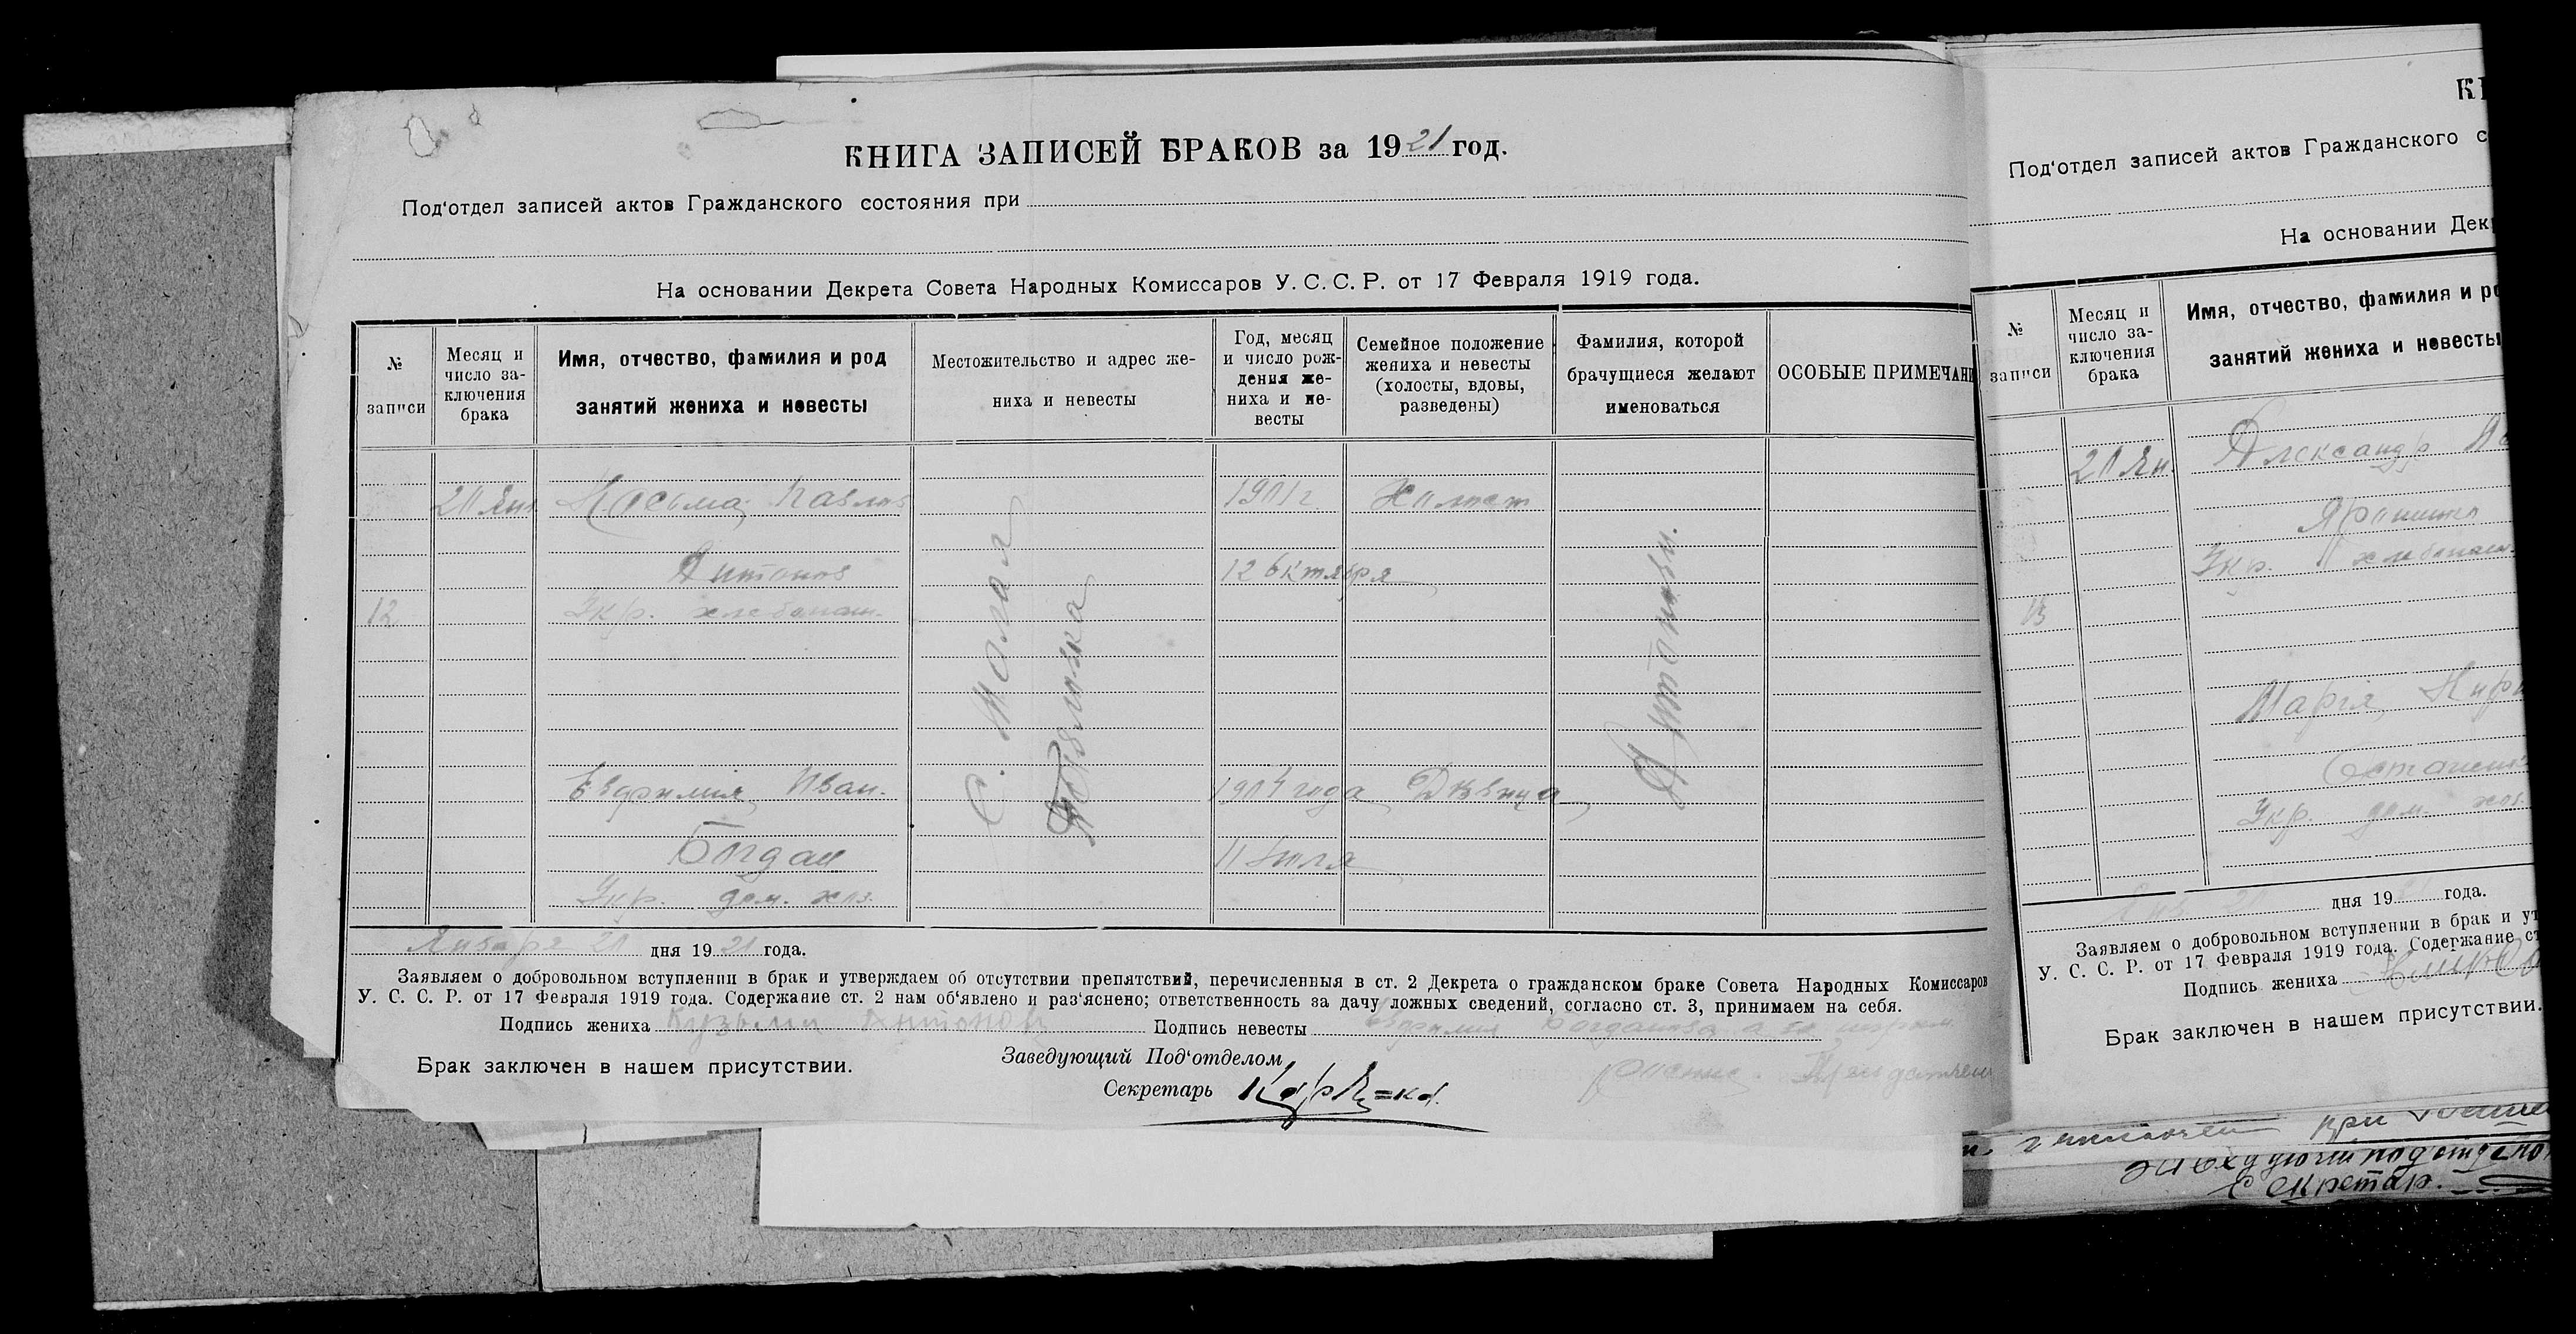 КНИГА ЗАПИСЕЙ БРАКОВ за 1921 год.
Под‘отдел записей актов Гражданского состояния при
На основании Декрета Совета Народных Комиссаров У. С. С. Р. от 17 Февраля 1919 года.
№ записи
Месяц и число за-
ключения брака
Имя, отчество, фамилия и род
занятий жениха и невесты
Местожительство и адрес же-
ниха и невесты
Год, месяц
и число рож-
дения же-
ниха и не-
весты
Семейное положение
жениха и невесты
(холосты, вдовы,
разведены)
Фамилия, которой
брачущиеся желают
именоваться
ОСОБЫЕ ПРИМЕЧАНИ
20 Янв. Косьма Павлов 1901 г. Холост
Антонов 12 Октября
12 Укр. хлебопаш.
С. Малая
Антоновы.
Евфимия Иван. 1904 года Дѣвица
Богдан 11 Июля
Укр. дом. хоз.
Января 20 дня 1921 года.
Заявляем о добровольном вступлении в брак и утверждаем об отсутствии препятствий, перечисленныя в ст. 2 Декрета о гражданском браке Совета Народных Комиссаров
У. С. С. Р. от 17 Февраля 1919 года. Содержание ст. 2 нам об‘явлено и раз‘яснено; ответственность за дачу ложных сведений, согласно ст. 3, принимаем на себя.
Подпись жениха Кузьма Антонов Подпись невесты
Брак заключен в нашем присутствии.
Заведующий Под‘отделом
Секретарь
КН
Под‘отдел записей актов Гражданского с
На основании Декр
№ записи
Месяц и
число за-
ключения
брака
Имя, отчество, фамилия и ро
занятий жениха и невесты
20 Ян. Александр
Укр. хлебопаш.
13
Мария
Укр. дом. хоз.
Янв 20 дня 19 года.
Заявляем о добровольном вступлении в брак и ут
У. С. С. Р. от 17 Февраля 1919 года. Содержание ст
Подпись жениха
Брак заключен в нашем присутствии.
при
Секретар.